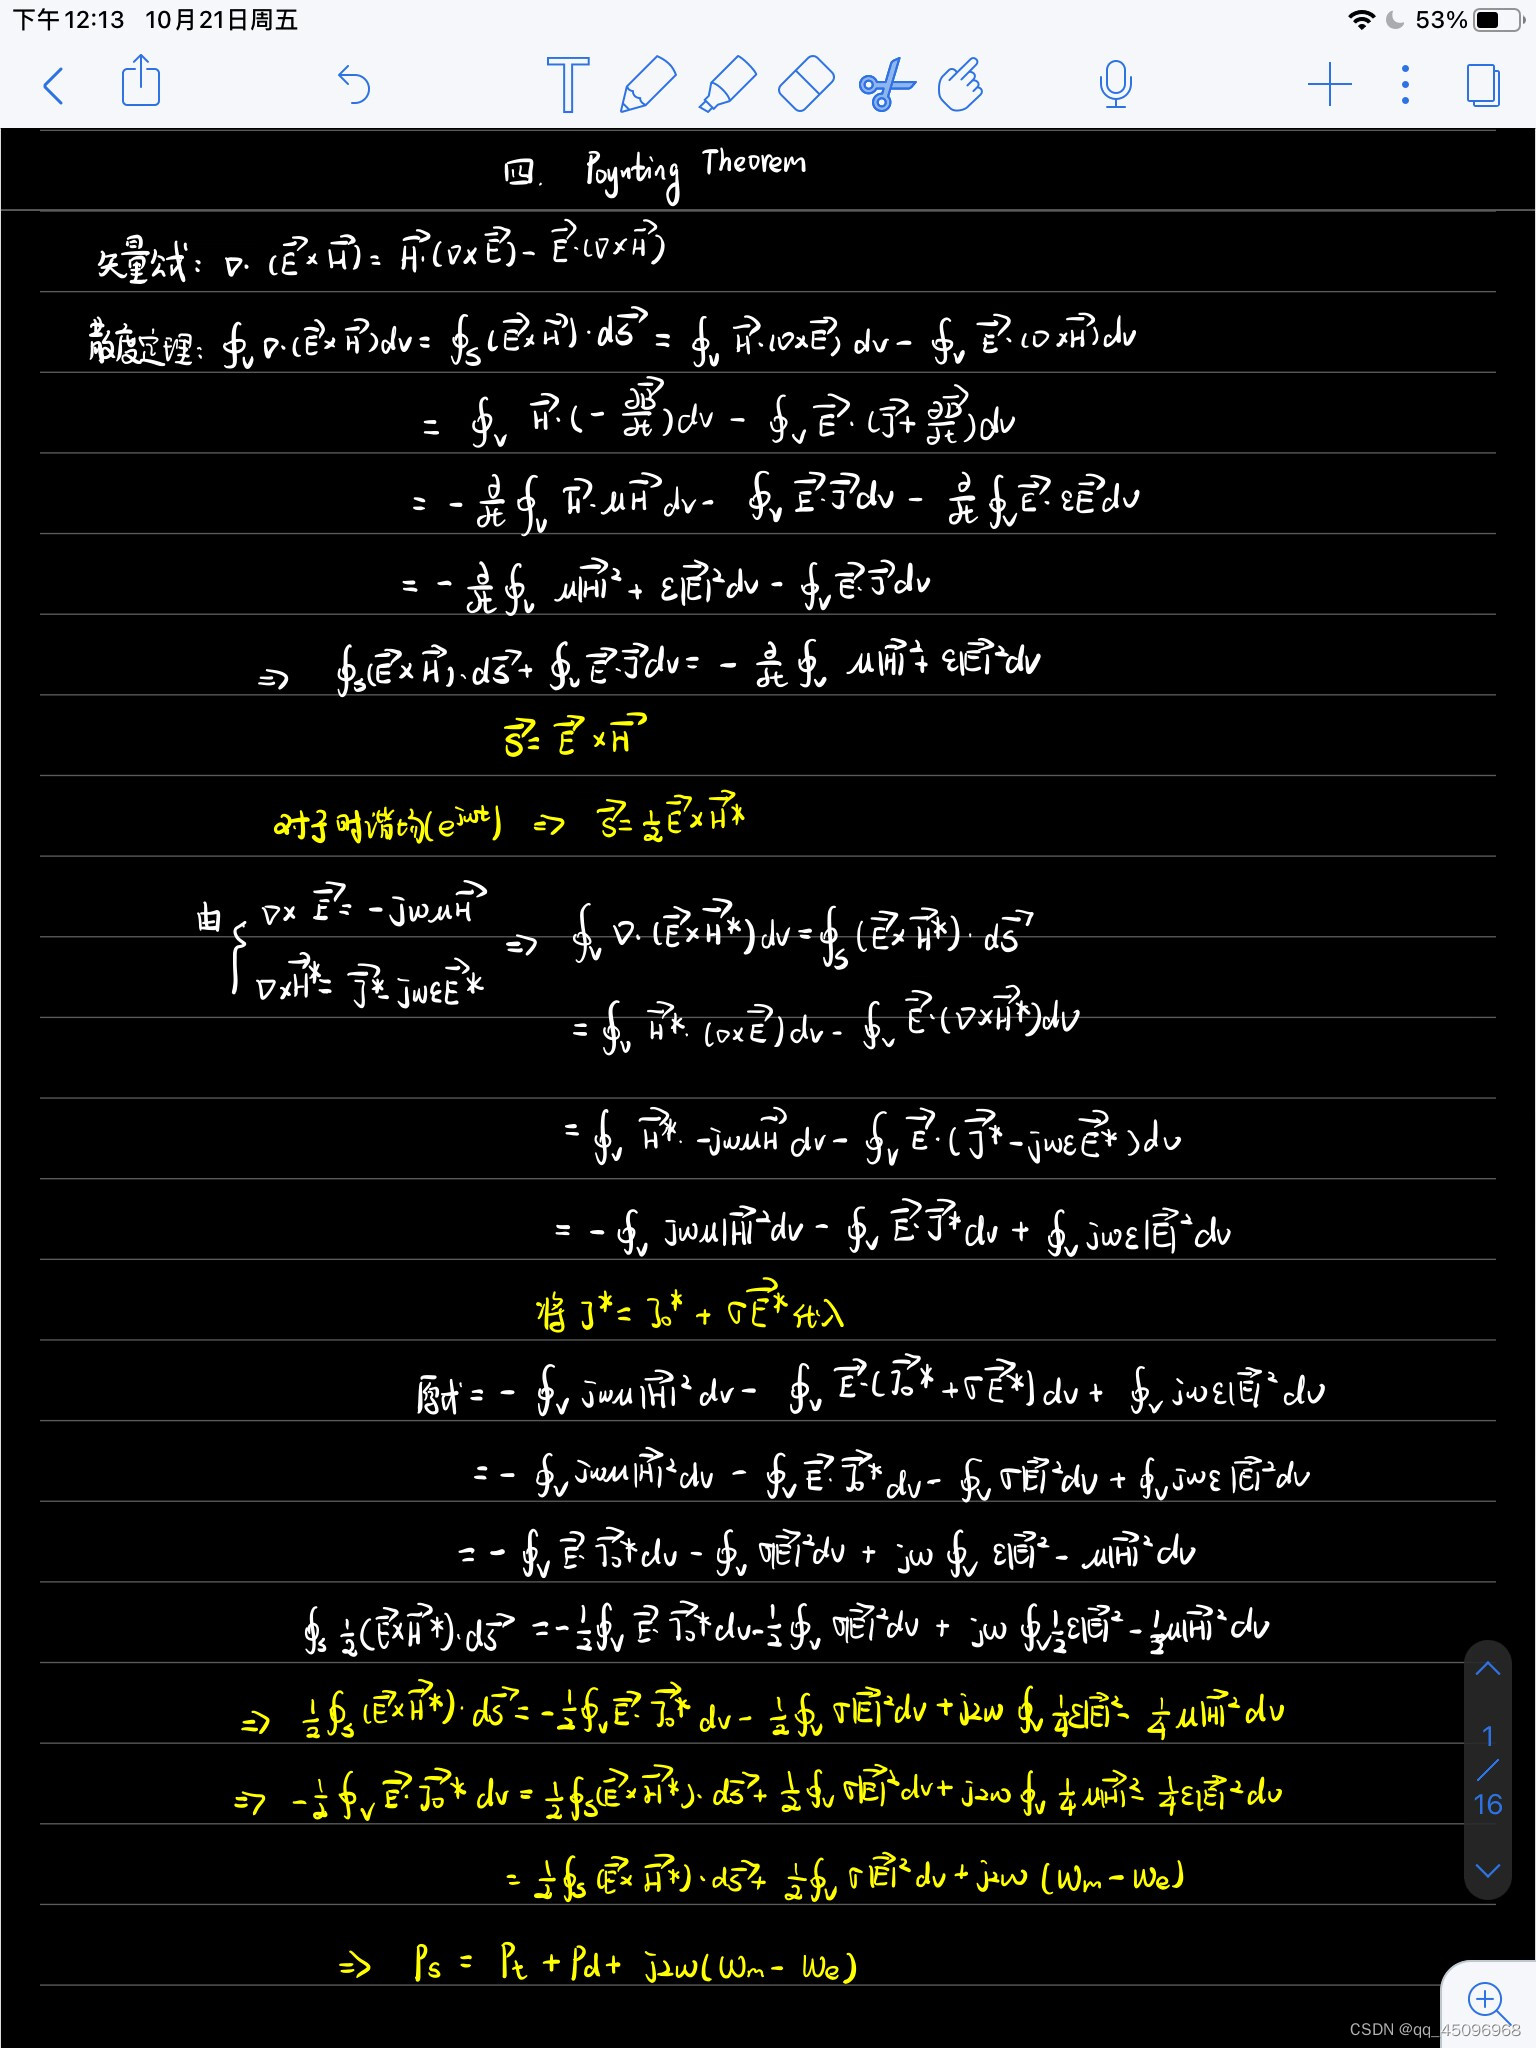 下午12:13 10月21日周五 53%
四. Poynting Theorem
矢量公式: ∇·(E⃗×H⃗)= H⃗·(∇×E⃗)- E⃗·(∇×H⃗)
散度定理: ∮v ∇·(E⃗×H⃗)dv= ∮s (E⃗×H⃗)·dS⃗ = ∮v H⃗·(∇×E⃗) dv - ∮v E⃗·(∇×H⃗)dv
= ∮v H⃗·(- ∂B⃗/∂t)dv - ∮v E⃗·(J⃗+ ∂D⃗/∂t)dv
= - ∂/∂t ∮v H⃗·μH⃗ dv - ∮v E⃗·J⃗dv - ∂/∂t ∮v E⃗·εE⃗dv
= - ∂/∂t ∮v μ|H⃗|² + ε|E⃗|²dv - ∮v E⃗·J⃗dv
⇒ ∮s(E⃗×H⃗)·dS⃗+ ∮v E⃗·J⃗dv= - ∂/∂t ∮v μ|H⃗|²+ ε|E⃗|²dv
S⃗= E⃗×H⃗
对于时谐场(e^jωt) ⇒ S⃗= ½E⃗×H⃗*
由 { ∇×E⃗= -jωμH⃗ ⇒ ∮v ∇·(E⃗×H⃗*)dv=∮s (E⃗×H⃗*)·dS⃗
∇×H⃗*= J⃗*- jωεE⃗*
= ∮v H⃗*·(∇×E⃗)dv - ∮v E⃗·(∇×H⃗*)dv
= ∮v H⃗*· -jωμH⃗ dv - ∮v E⃗·(J⃗* - jωεE⃗*)dv
= - ∮v jωμ|H⃗|²dv - ∮v E⃗·J⃗*dv + ∮v jωε|E⃗|²dv
将 J* = J₀* + σE⃗*代入
原式 = - ∮v jωμ|H⃗|²dv - ∮v E⃗·(J⃗₀*+σE⃗*)dv + ∮v jωε|E⃗|²dv
= - ∮v jωμ|H⃗|²dv - ∮v E⃗·J⃗₀*dv - ∮v σ|E⃗|²dv + ∮v jωε|E⃗|²dv
= - ∮v E⃗·J⃗₀*dv - ∮v σ|E⃗|²dv + jω ∮v ε|E⃗|² - μ|H⃗|²dv
∮s ½(E⃗×H⃗*)·dS⃗ = -½∮v E⃗·J⃗₀*dv-½∮v σ|E⃗|²dv + jω ∮v½ε|E⃗|² - ½μ|H⃗|²dv
⇒ ½∮s (E⃗×H⃗*)·dS⃗ = -½∮v E⃗·J⃗₀*dv - ½∮v σ|E⃗|²dv + j2ω ∮v ¼ε|E⃗|²- ¼μ|H⃗|²dv
⇒ -½∮v E⃗·J⃗₀*dv = ½∮s(E⃗×H⃗*)·dS⃗+ ½∮v σ|E⃗|²dv+ j2ω ∮v ¼μ|H⃗|²- ¼ε|E⃗|²dv
= ½∮s (E⃗×H⃗*)·dS⃗+ ½∮v σ|E⃗|²dv + j2ω (Wm - We)
⇒ Ps = Pt + Pd + j2ω(Wm - We)
1
/
16
CSDN @qq_45096968